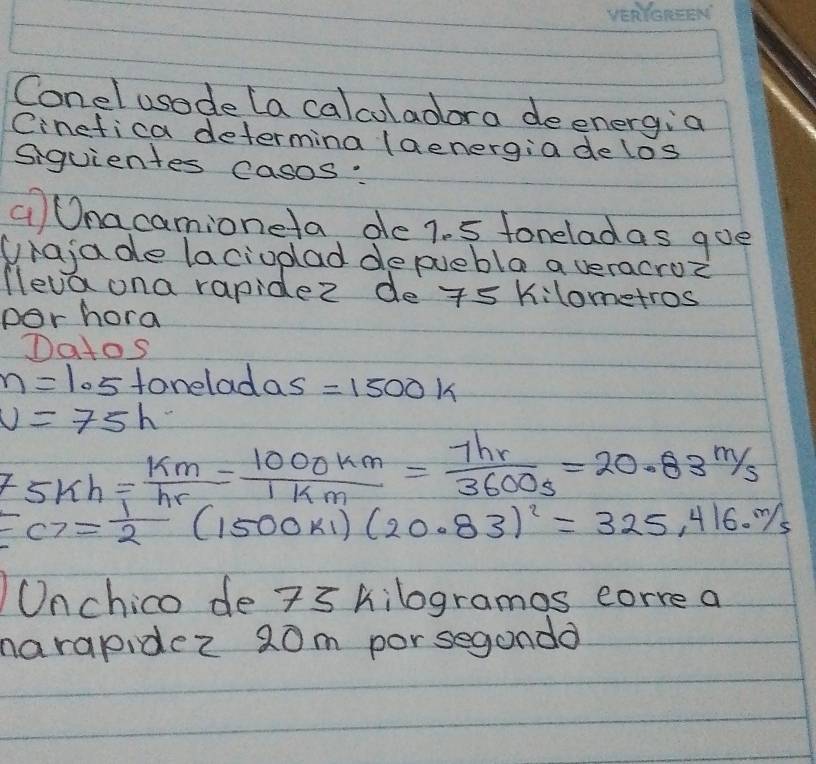 VERYGREEN
Con el uso de la calculadora de energia
Cinetica determina la energia de los
Siguientes casos:
a) Una camioneta de 1.5 toneladas que
viaja de la ciudad de puebla a veracruz
lleva una rapidez de 75 Kilometros
por hora
Datos
m = 1.5 toneladas = 1500 K
V = 75 h
75 Kh = Km/hr = 1000 Km/1 Km = 1hr/3600s = 20.83 m/s
Ec) = 1/2 (1500 K1) (20.83)² = 325,416. m/s
) Un chico de 75 Kilogramos corre a
na rapidez 20m por segundo